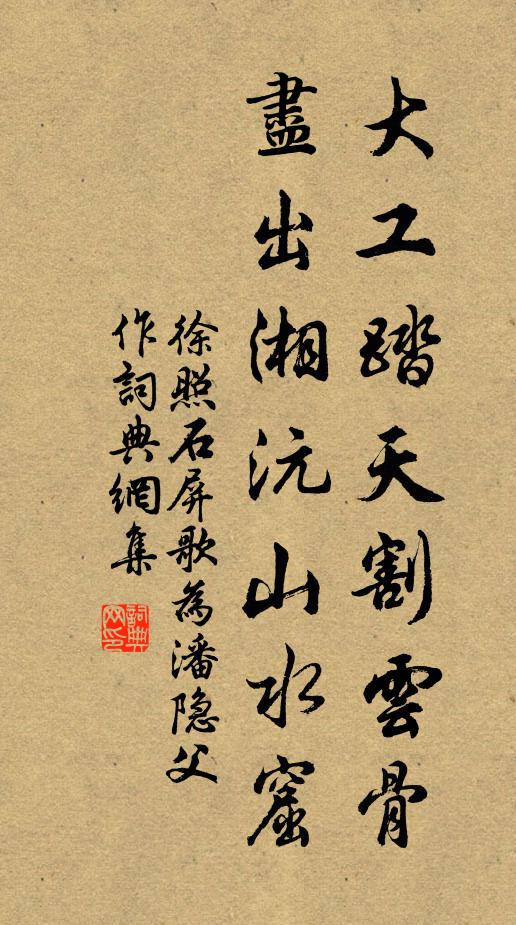 大工踏天割雲骨
盡出湘沅山水窟
徐照石屏歌為潘隐父
作詞典網集
詞典網印